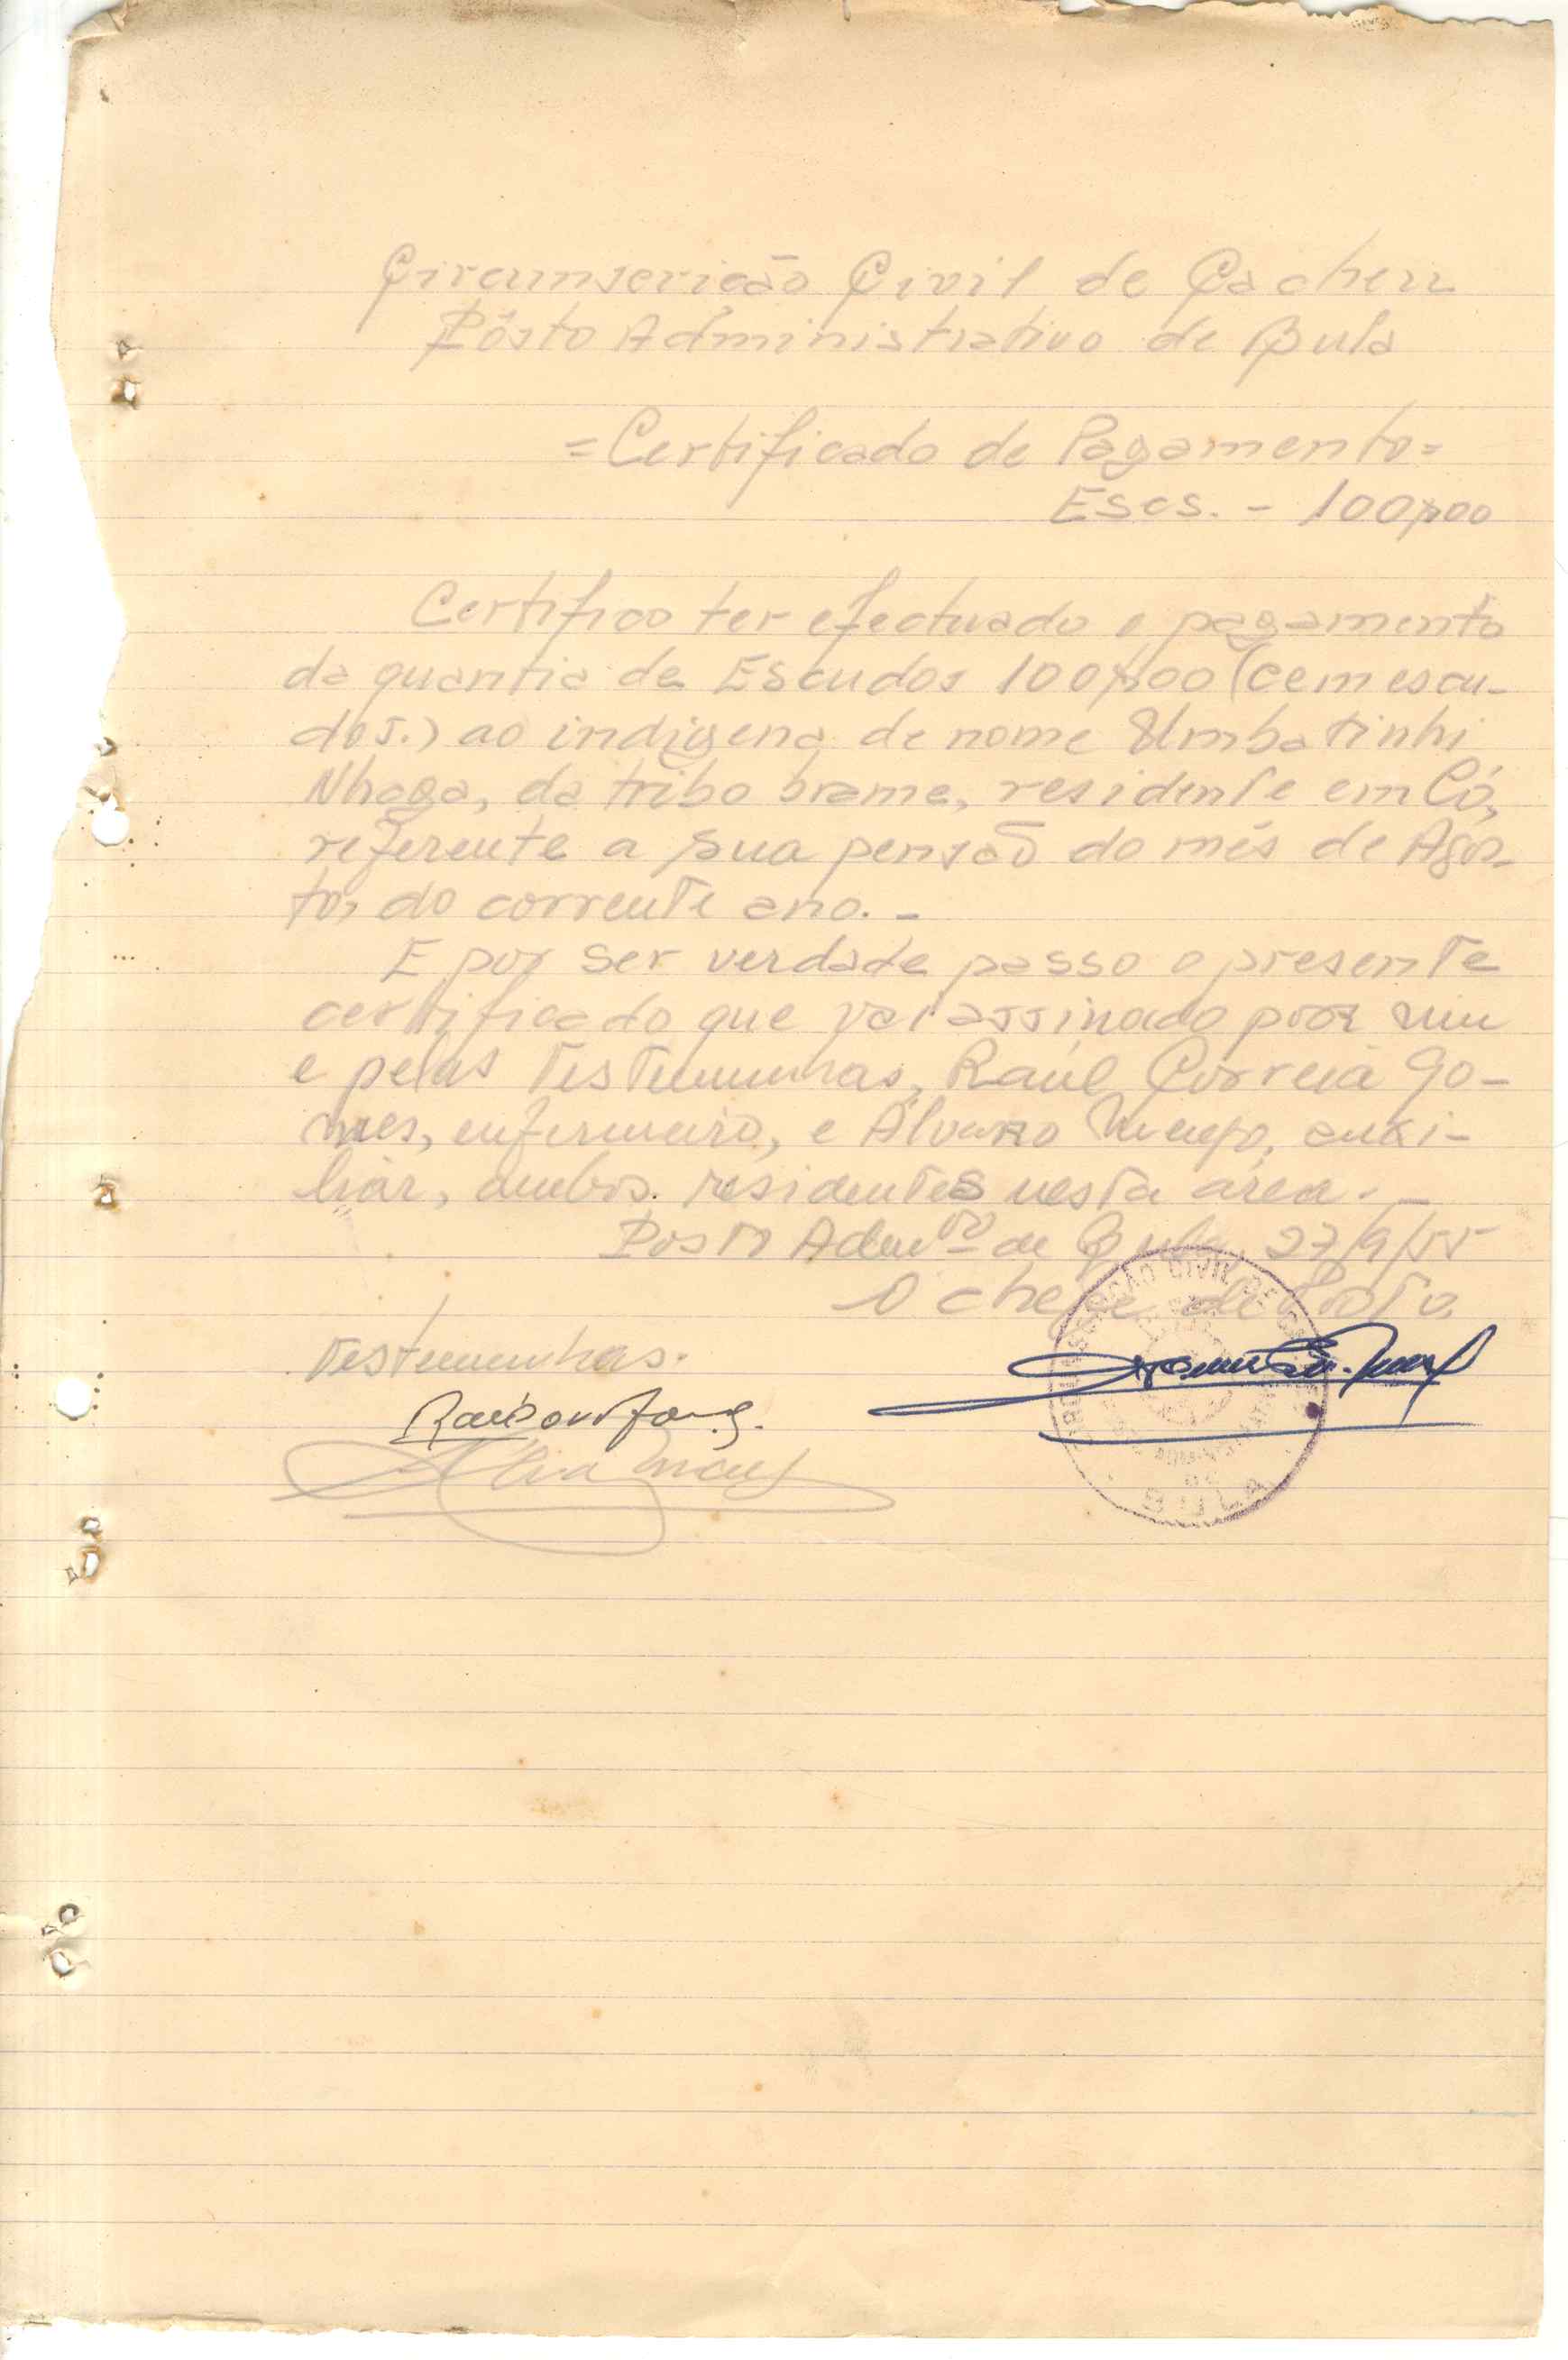 Circunscrição Civil de Cacheu
Pôsto Administrativo de Bula
=Certificado de Pagamento=
Escs. - 100$00
Certifico ter efectuado o pagamento
da quantia de Escudos 100$00 (cem escu-
dos.) ao indigena de nome Umbatinhi
Nhaga, da tribo brame, residente em Có,
referente a sua pensão do mês de Agos-
to, do corrente ano. -
E por ser verdade passo o presente
certificado que vai assinado por mim
e pelas testemunhas, Raúl Correia Go-
mes, enfermeiro, e Álvaro, auxi-
liar, ambos residentes nesta área. -
Posto Admvo de Bula, 27/9/55
O chefe de Posto
Testemunhas.
CIRCUNSCRIÇÃO CIVIL DE CACHEU
POSTO ADMINISTRATIVO
DE
BULA